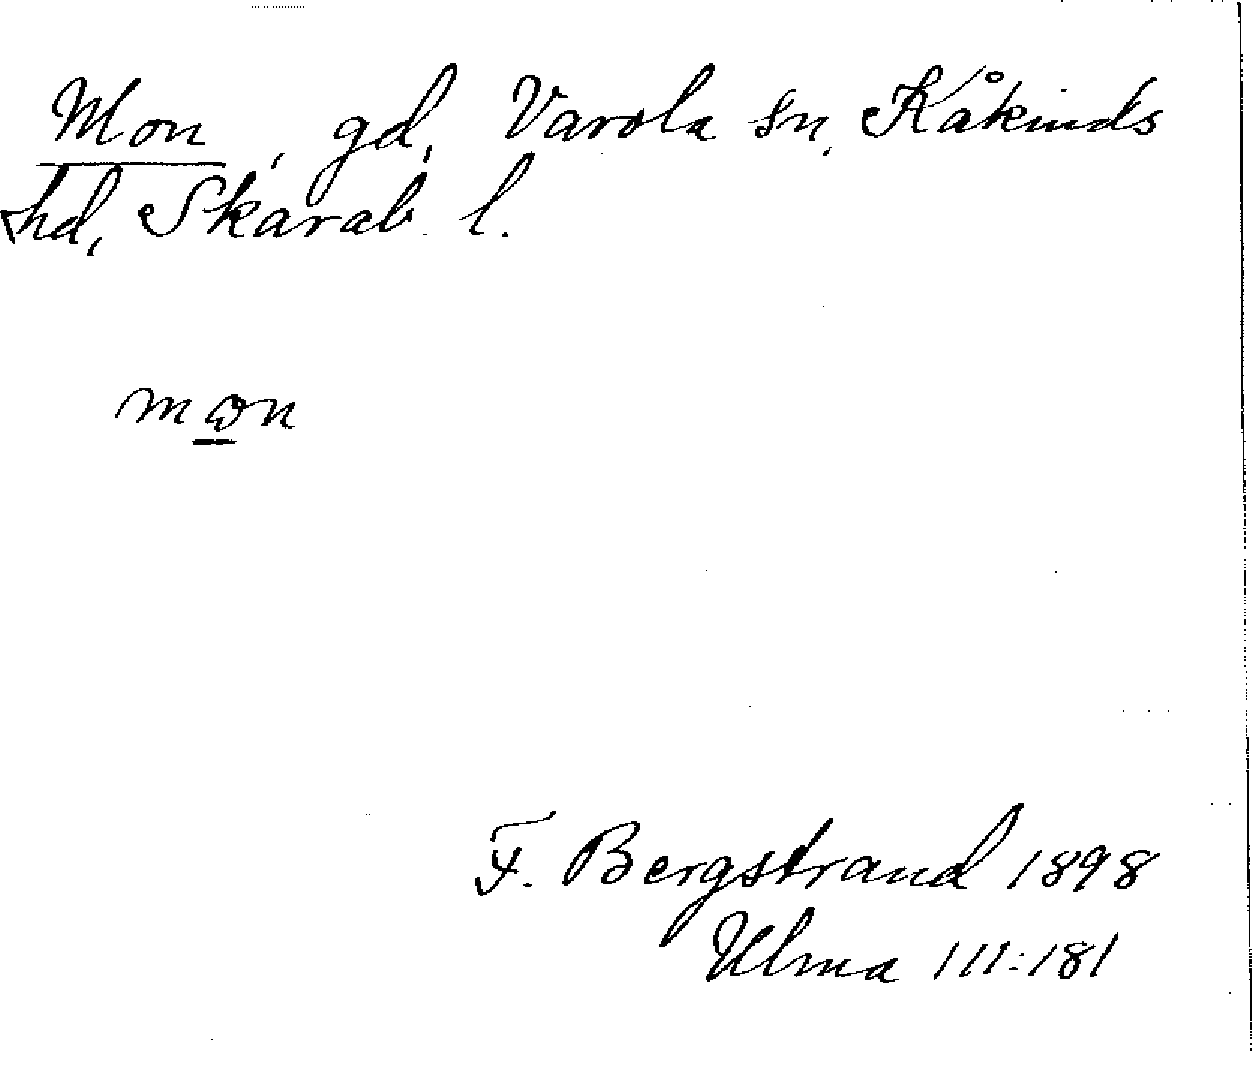 Mon, gd, Varola sn, Kåkinds
hd, Skarab. l.
mɷn
F. Bergstrand 1898
Ulma 111:181